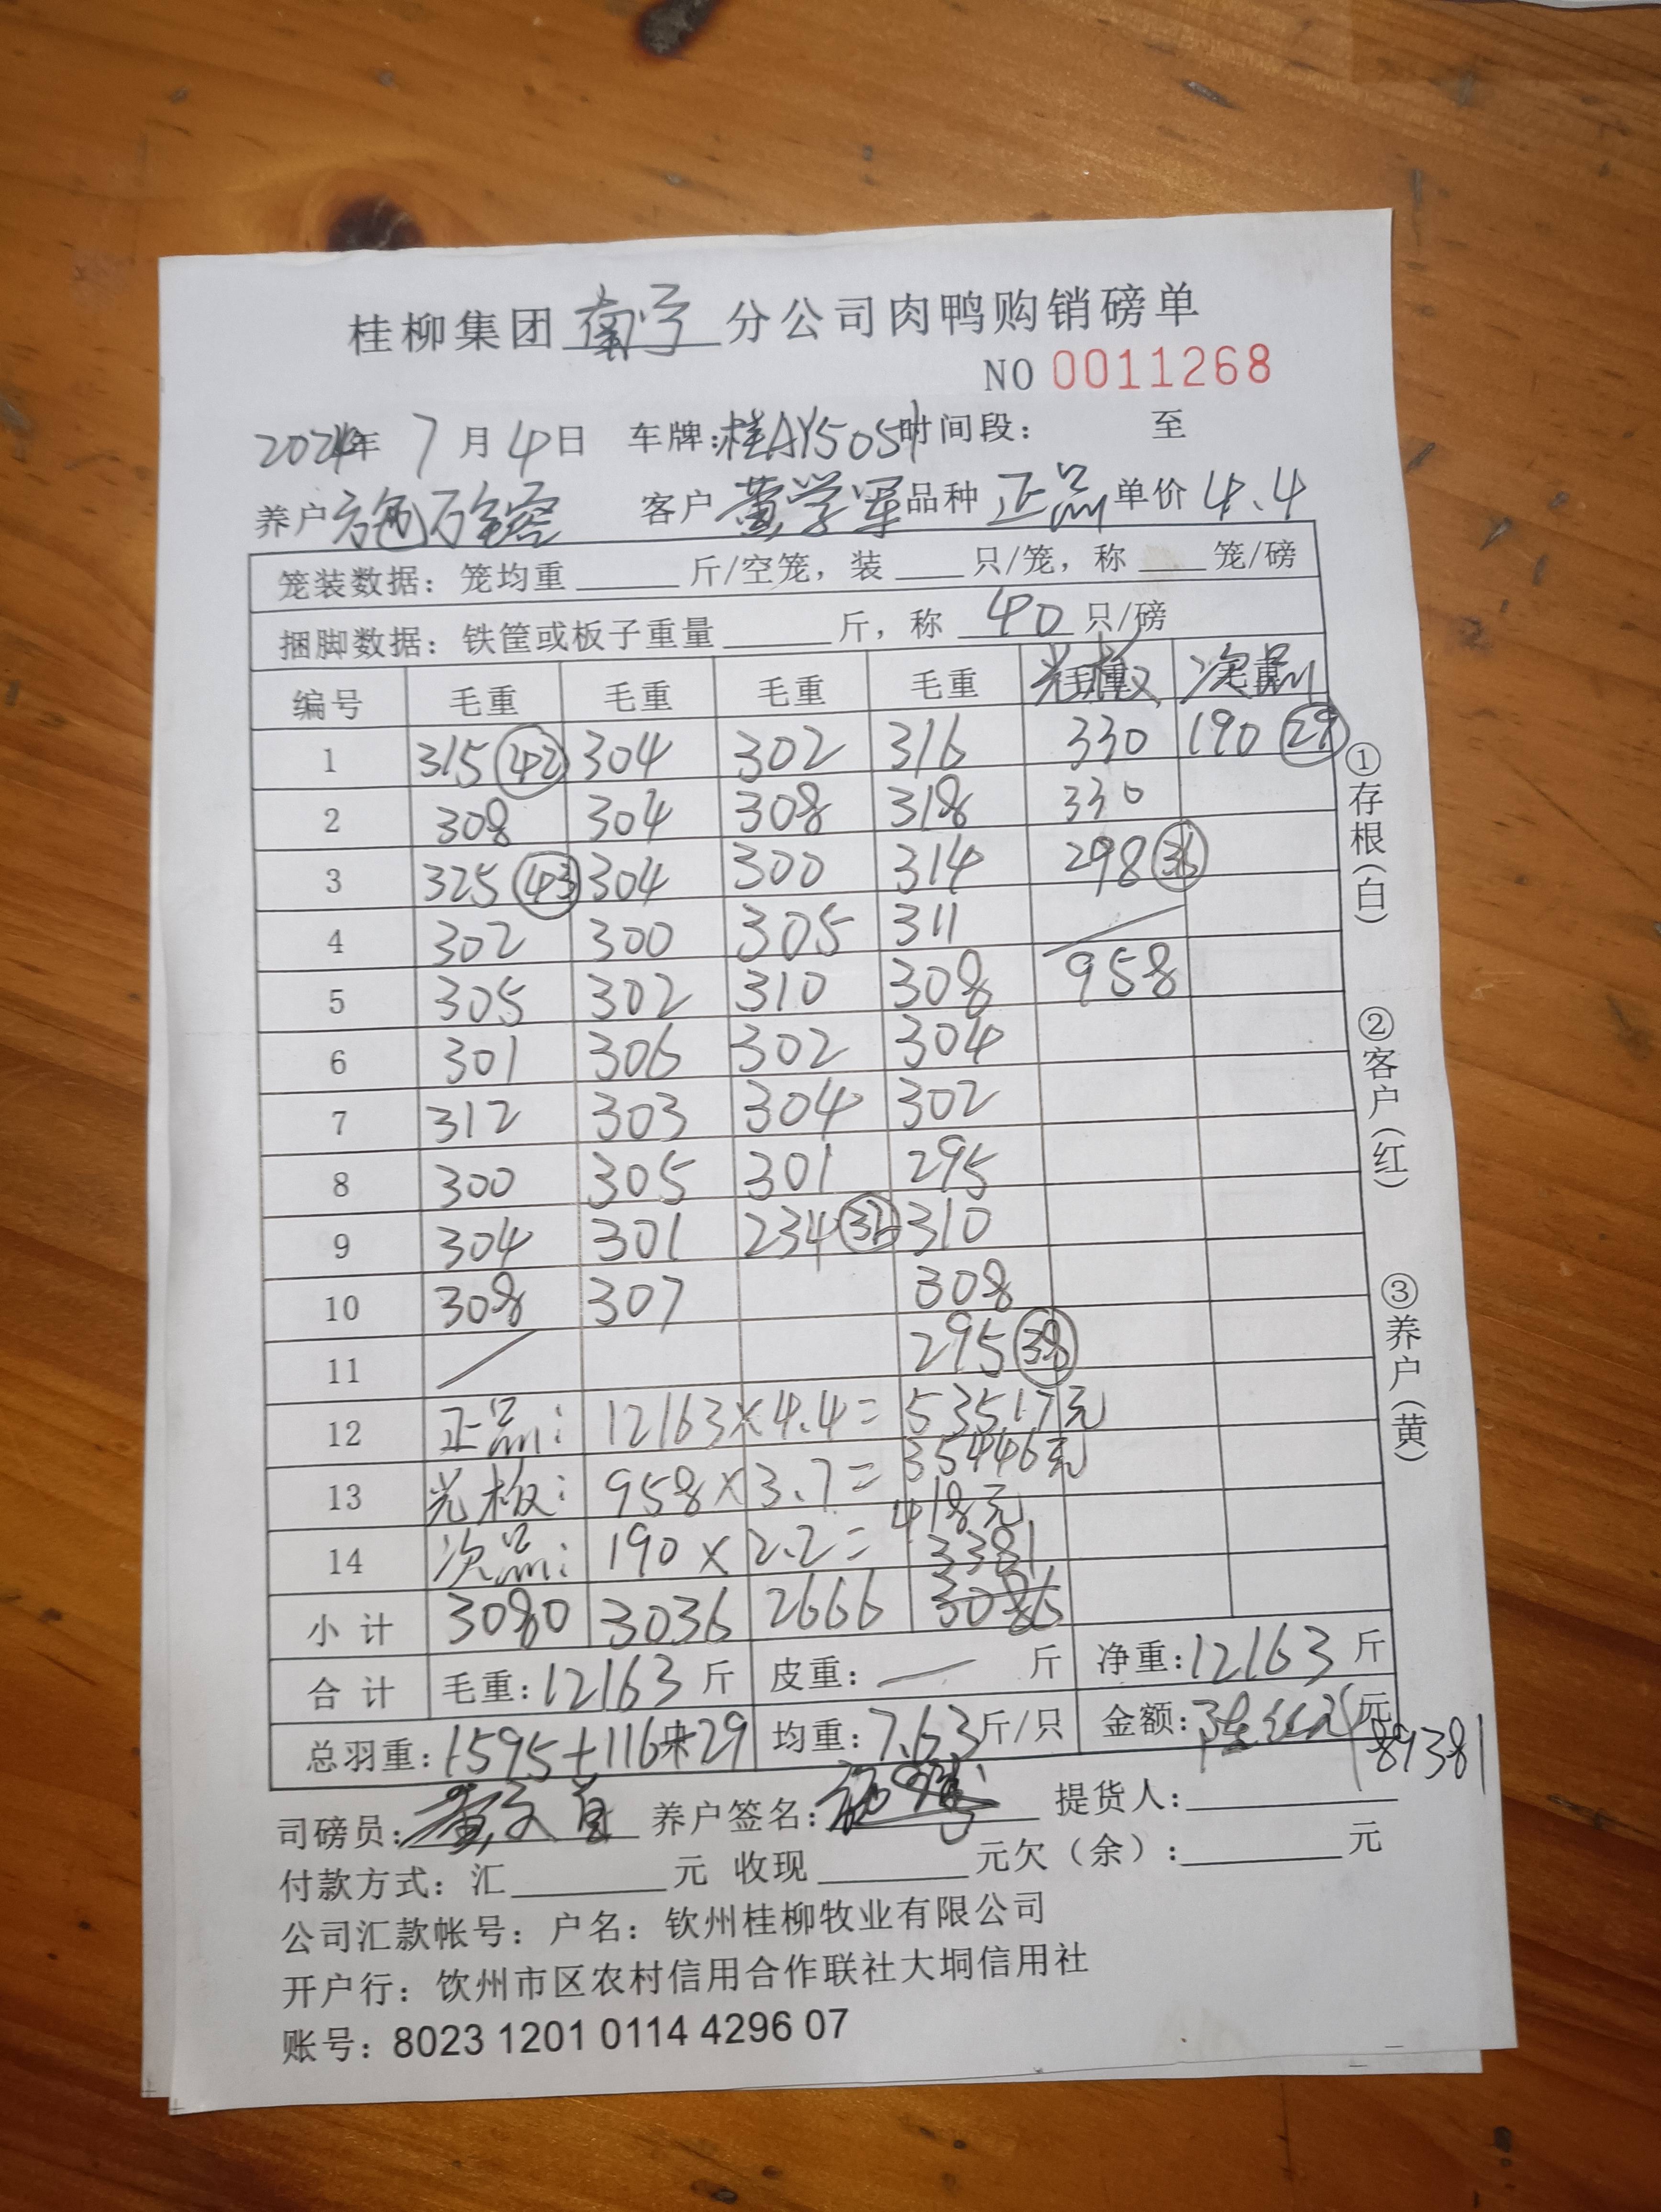 桂柳集团南宁分公司肉鸭购销磅单
NO 0011268
2024年 7月4日 车牌:桂AY505 时间段: 至
养户 施万 客户 黄学军 品种 正品 单价 4.4
笼装数据: 笼均重 斤/空笼, 装 只/笼, 称 笼/磅
捆脚数据: 铁筐或板子重量 斤, 称 40 只/磅
编号 毛重 毛重 毛重 毛重 光板 次品
1 315 42 304 302 316 330 190 29
2 308 304 308 318 330
3 325 43 304 300 314 298 36
4 302 300 305 311
5 305 302 310 308 958
6 301 306 302 304
7 312 303 304 302
8 300 305 301 295
9 304 301 234 310
10 308 307 308
11 295 38
12 正品: 12163×4.4= 53517元
13 光板: 958×3.7= 35446元
14 次品: 190×2.2= 418元
3381
小计 3080 3036 2666 3086
合计 毛重: 12163 斤 皮重: — 斤 净重: 12163 斤
总羽重: 1595+116+29 均重: 7.63 斤/只 金额: 元
司磅员: 黄文 养户签名: 提货人:
付款方式: 汇 元 收现 元欠(余): 元
公司汇款帐号: 户名: 钦州桂柳牧业有限公司
开户行: 钦州市区农村信用合作联社大垌信用社
账号: 8023 1201 0114 4296 07
①存根(白)
②客户(红)
③养户(黄)